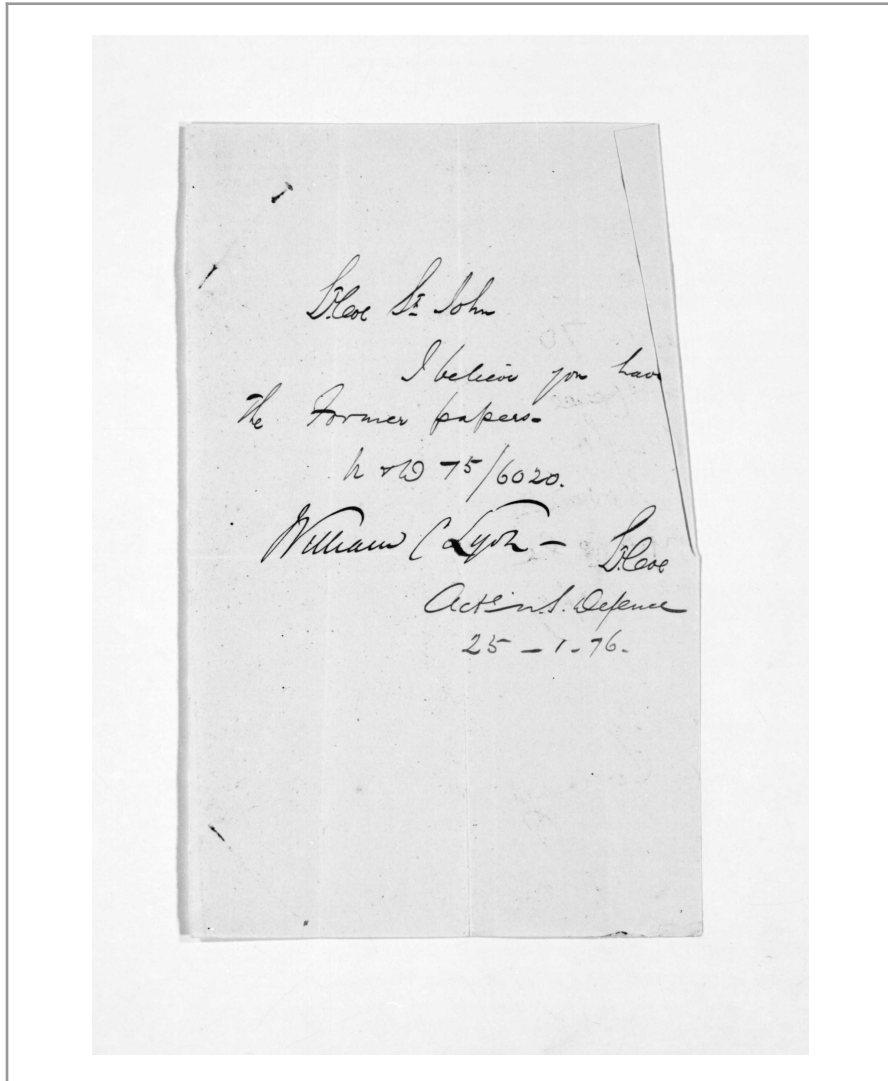 Lt. Col St. John
I believe you have
the Former papers.
N & D 75/6020.
William C Lyon - Lt. Col
Act: U. S. Defence
25 - 1 - 76.